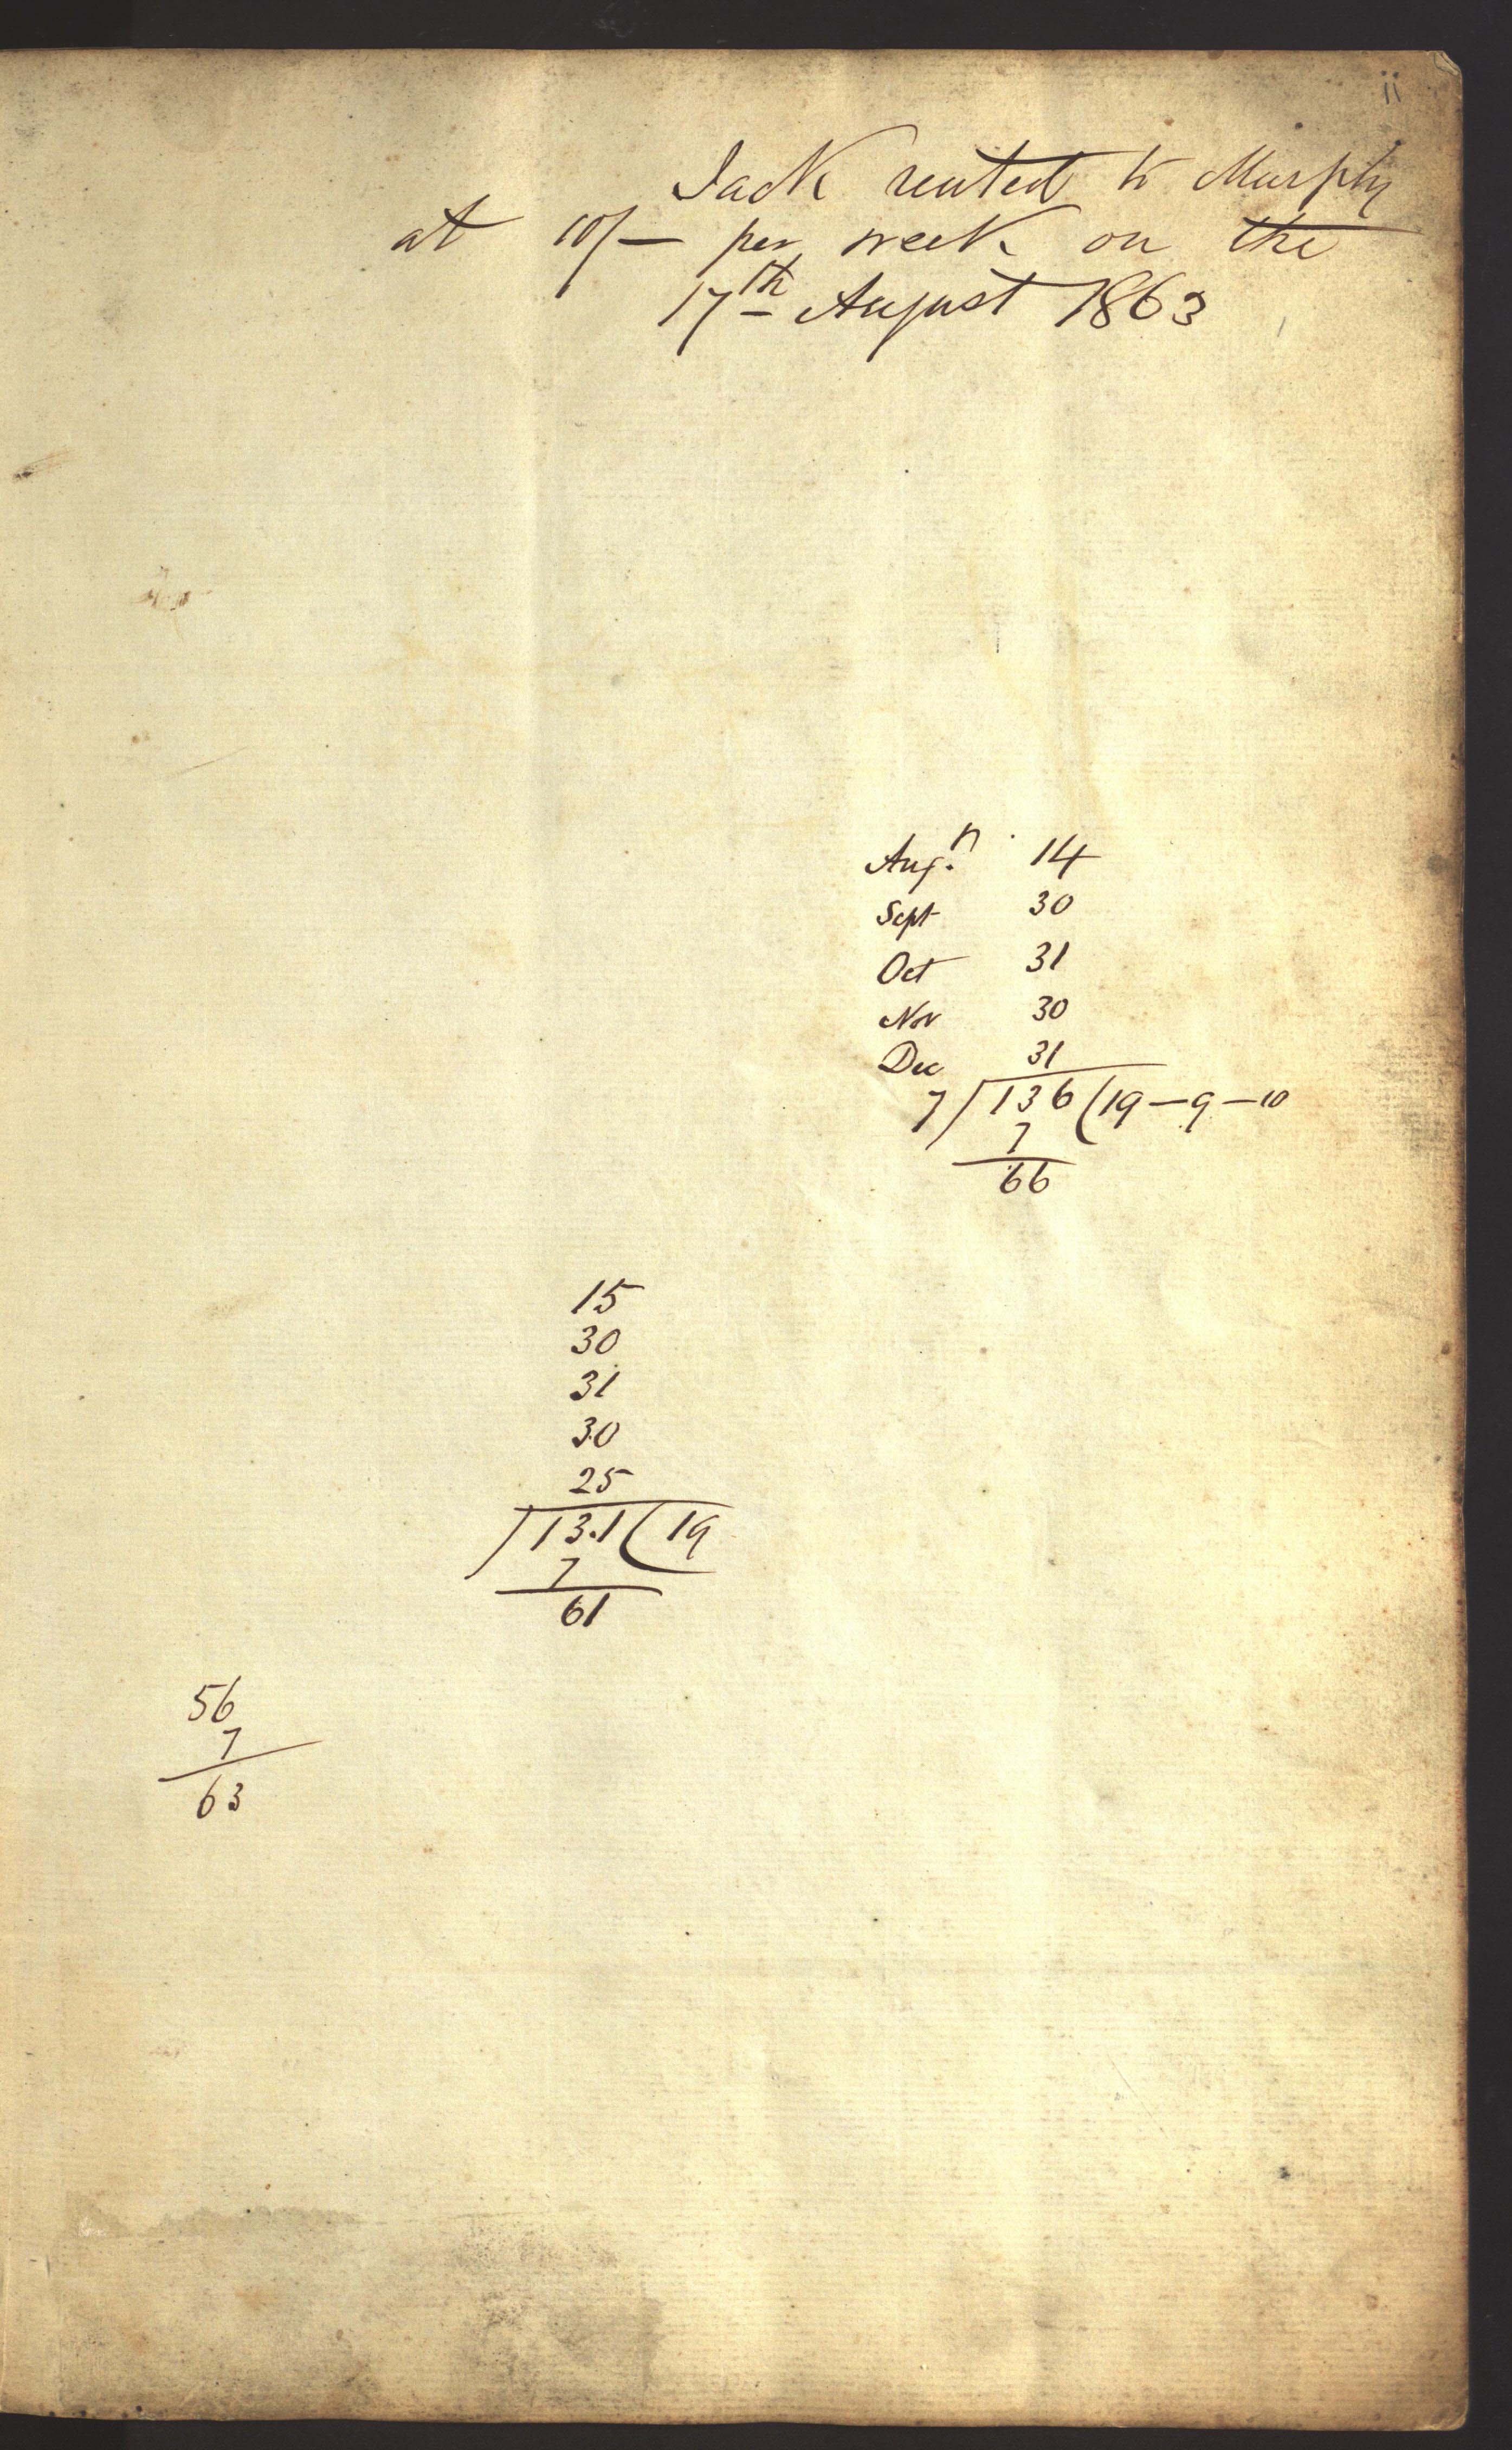 ii
Jack rented to Murphy
at 10/— per week on the
17th August 1863
Aug. 14
Sept 30
Oct 31
Nov 30
Dec 31
7 / 136 ( 19 — 9 — 10
7
66
15
30
31
30
25
/ 13.1 ( 19
7
61
56
7
63